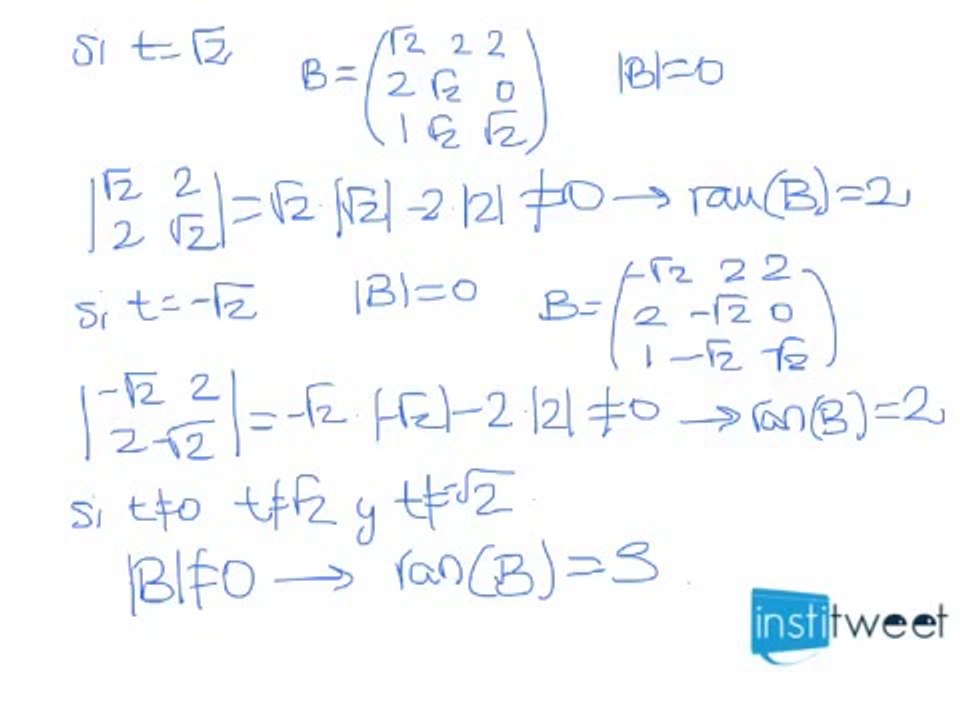 si t=√2 B=(√2 2 2 |B|=0
2 √2 0
1 √2 √2)
|√2 2
2 √2|=√2·|√2|-2·|2| ≠0 → ran(B)=2,
si t=-√2 |B|=0 B=(-√2 2 2
2 -√2 0
1 -√2 -√2)
|-√2 2
2 -√2|=-√2·|-√2|-2·|2| ≠0 → ran(B)=2,
si t≠0 t≠√2 y t≠-√2
|B|≠0 → ran(B)=3
institweet